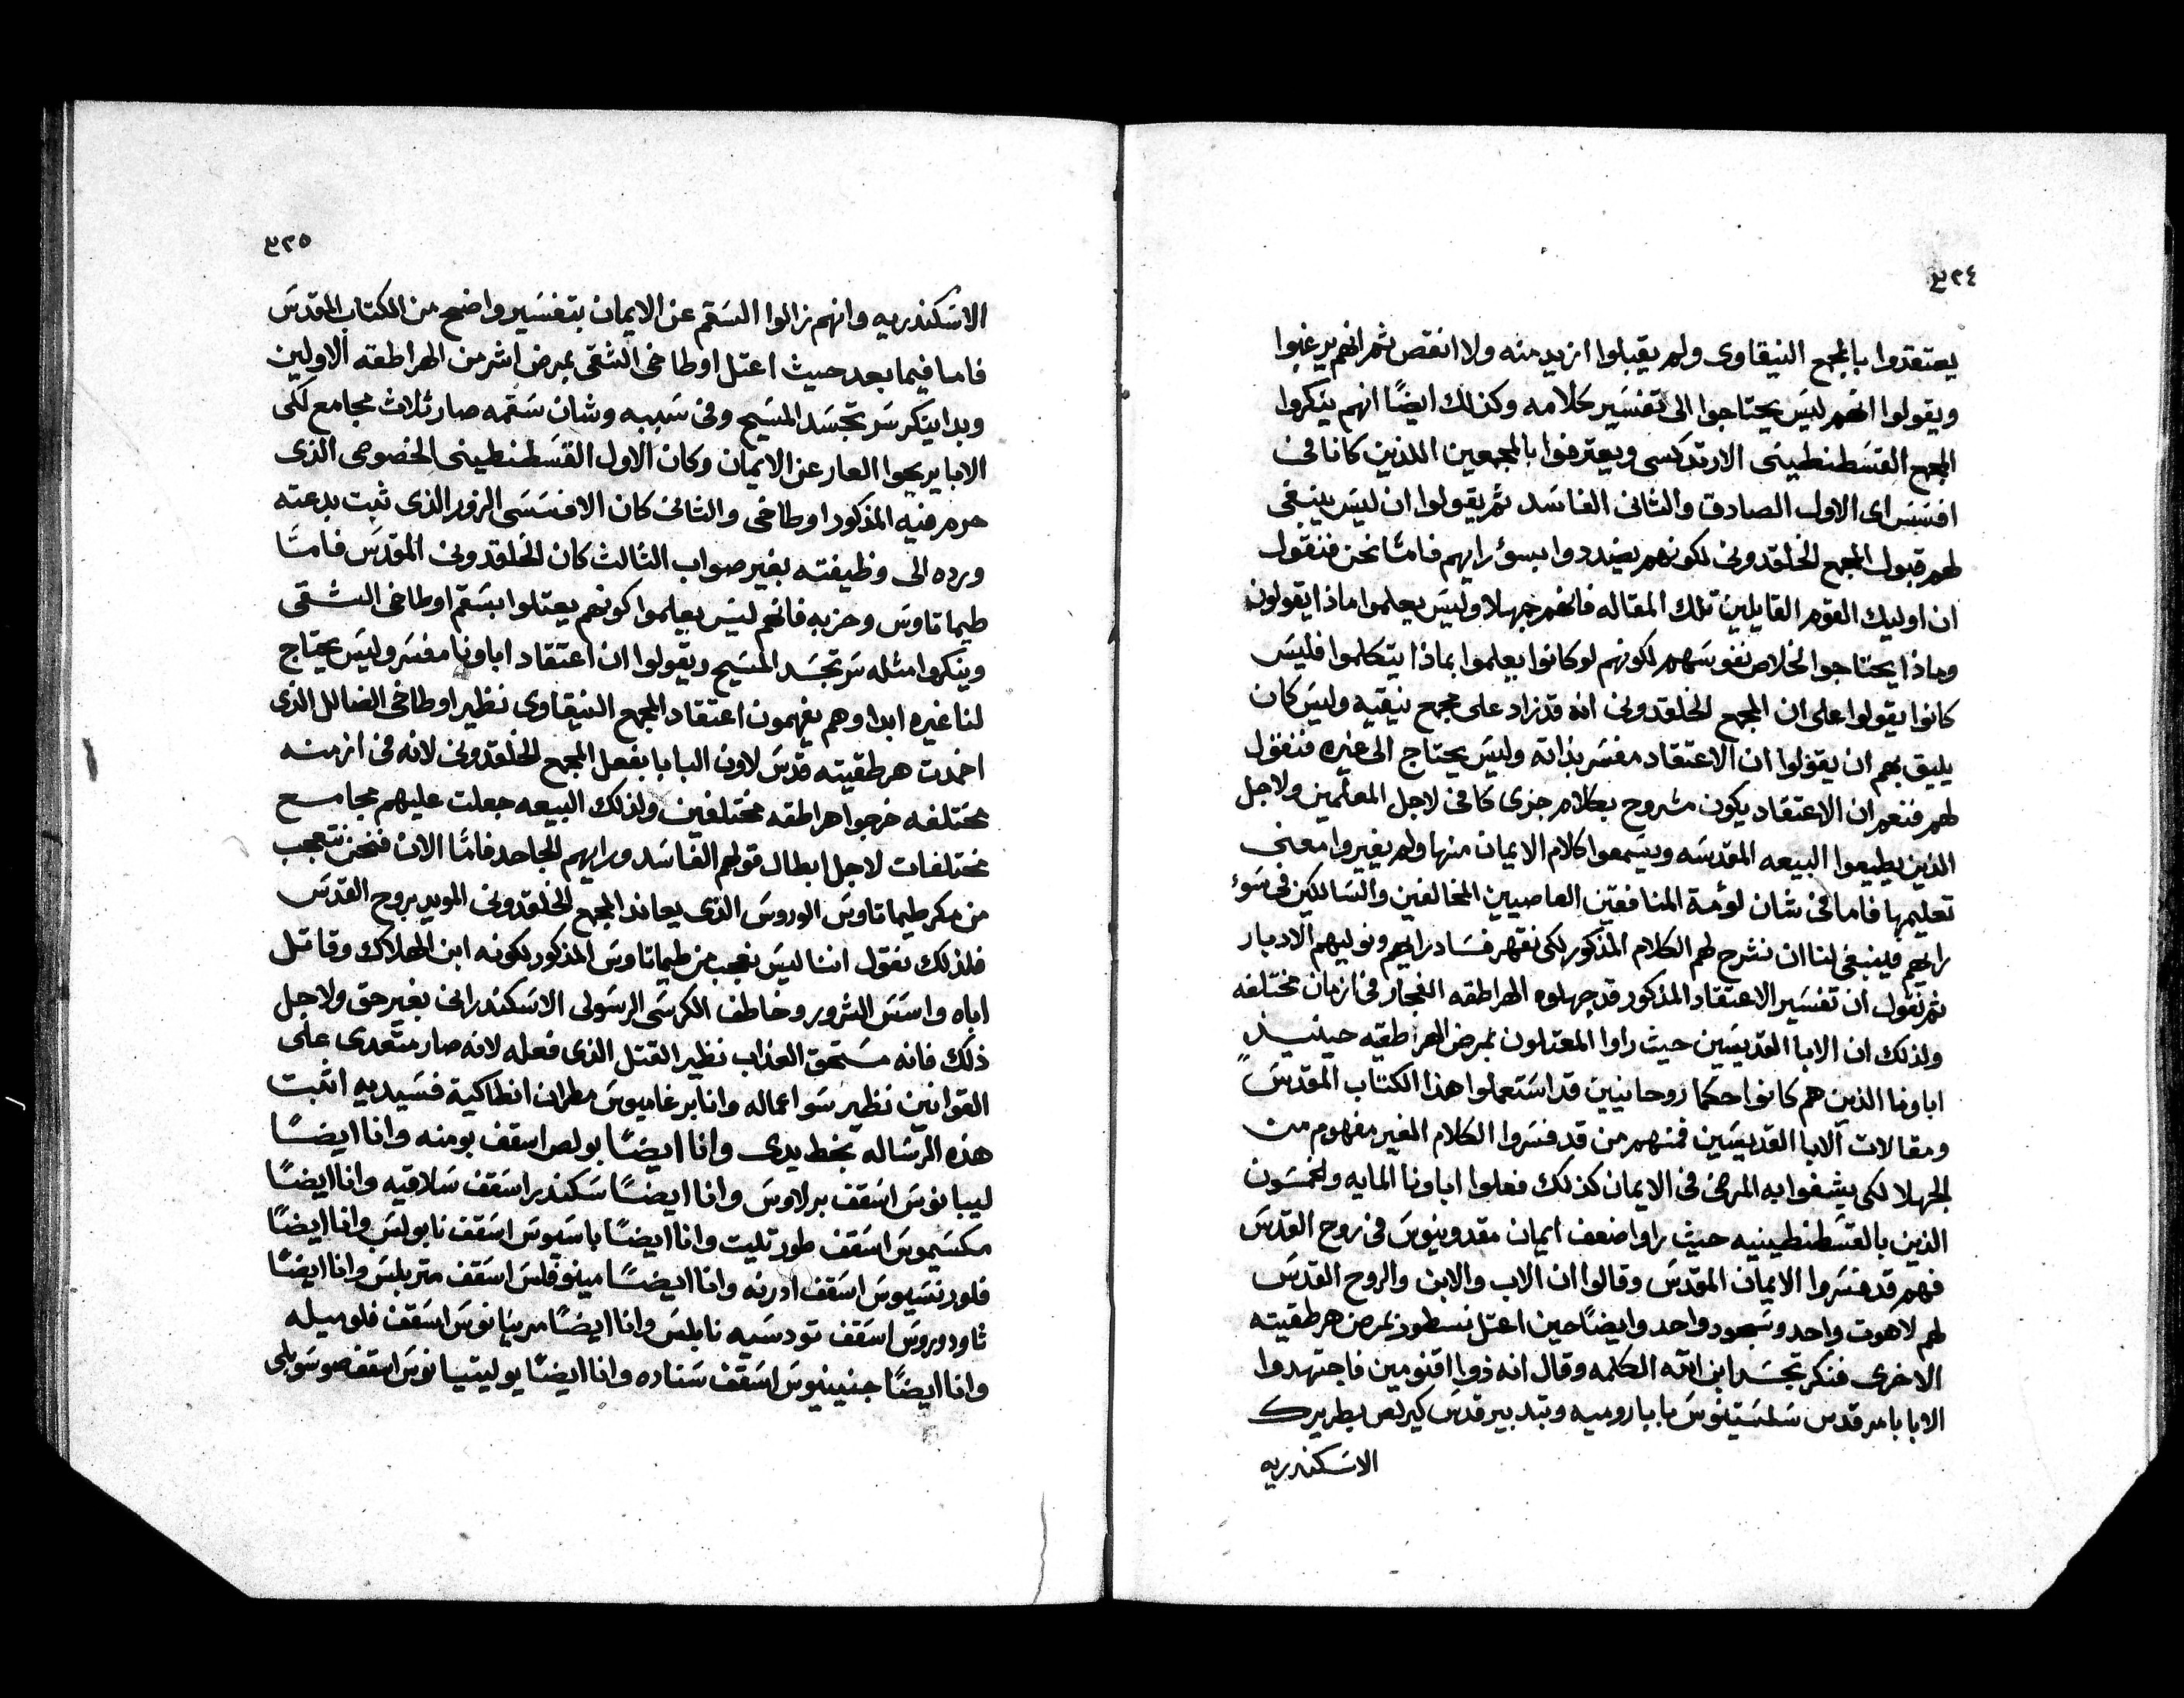 ٣٢٤
يعتقدوا بالمجمع النيقاوى ولم يقبلوا ازيد منه ولا انقص ثم انهم يرغبوا
ويقولوا انهم ليس يحتاجوا الى تفسير كلامه وكذلك ايضًا انهم ينكروا
المجمع القسطنطينى الارتدكسى ويعترفوا بالمجمعين اللذين كانا فى
افسس اى الاول الصادق والثانى الفاسد ثم يقولوا ان ليس ينبغى
لهم قبول المجمع الخلقدونى لكونهم يضددوا بسؤ رايهم فامّا نحن فنقول
ان اوليك القوم القايلين تلك المقاله فانهم جهلا وليس يعلموا ماذا يقولون
وماذا يحتاجوا لخلاص نفوسهم لكونهم لو كانوا يعلموا بماذا يتكلموا فليس
كانوا يقولوا على ان المجمع الخلقدونى انه قد زاد على مجمع نيقيه وليس كان
يليق بهم ان يقولوا ان الاعتقاد مفسر بذاته وليس يحتاج الى غيره فنقول
لهم فنعم ان الاعتقاد يكون مشروح بكلام جزى كافى لاجل المعلمين ولاجل
الذين يطيعوا البيعه المقدسه ويسمعوا كلام الايمان منها ولم يغيروا معنى
تعليمها فاما فى شان لومة المنافقين العاصيين المخالفين والسالكين فى سوء
رايهم فينبغى لنا ان نشرح لهم الكلام المذكور لكى نقهر فساد رايهم ونوليهم الادبار
ثم نقول ان تفسير الاعتقاد المذكور قد جهلوه الهراطقه الفجار فى ازمان مختلفه
ولذلك ان الابا القديسين حيث راوا المعتلون بمرض الهراطقيه حينيذٍ
اباونا الذين هم كانوا حكما روحانيين قد استعملوا هذا الكتاب المقدس
ومقالات الابا القديسين فمنهم من قد فسروا الكلام الغير مفهوم من
الجهلا لكى يشفوا به المرضى فى الايمان كذلك فعلوا اباونا المايه والخمسون
الذين بالقسطنطينيه حيث راوا ضعف ايمان مقدونيوس فى روح القدس
فهم قد فسروا الايمان المقدس وقالوا ان الاب والابن والروح القدس
لهم لاهوت واحد وسجود واحد وايضًا حين اعتل نسطور بمرض هرطقيته
الاخرى فنكر تجسد ابن الله الكلمه وقال انه ذوا اقنومين فاجتهدوا
الابا بامر قدس سلستينوس بابا روميه وبتدبير قدس كيرلص بطريرك
الاسكندريه
٣٢٥
الاسكندريه وانهم زالوا السقم عن الايمان بتفسير واضح من الكتاب المقدس
فاما فيما بعد حيث اعتل اوطاخى الشقى بمرض اشر من الهراطقه الاولين
وبدا ينكر سر تجسد المسيح وفى سببه وشان سقمه صار ثلاث مجامع لكى
الابا يريحوا العار عن الايمان وكان الاول القسطنطينى الخصوصى الذى
حرم فيه المذكور اوطاخى والثانى كان الافسسى الزور الذى ثبت بدعته
ورده الى وظيفته بغير صواب الثالث كان الخلقدونى المقدس فامّا
طيماتاوس وحزبه فانهم ليس يعلموا كونهم يعتلوا بسقم اوطاخى الشقى
وينكروا مثله سر تجسد المسيح ويقولوا ان اعتقاد اباونا مفسر وليس يحتاج
لنا غيره ابدا وهم يفهمون اعتقاد المجمع النيقاوى نظير اوطاخى الضالل الذى
اخمدت هرطقيته قدس لاون البابا بفعل المجمع الخلقدونى لانه فى ازمنه
مختلفه خرجوا هراطقه مختلفين ولذلك البيعه جعلت عليهم مجامع
مختلفات لاجل ابطال قولهم الفاسد ورايهم الجاحد فامّا الان فنحن نتعجب
من مكر طيماتاوس الوروس الذى يعاند المجمع الخلقدونى المويد بروح القدس
فلذلك نقول اننا ليس نعجب من طيماتاوس المذكور لكونه ابن الهلاك وقاتل
اباه واسس الشرور وخاطف الكرسى الرسولى الاسكندرانى بغير حق ولاجل
ذلك فانه مستحق العذاب نظير القتل الذى فعله لانه صار متعدى على
القوانين نظير سو اعماله وانا برغاميوس مطران انطاكية فسيديه اثبت
هذه الرساله بخط يدى وانا ايضًا بولص اسقف بومنه وانا ايضًا
ليبانوس اسقف برلاوس وانا ايضًا سكندر اسقف سلاقيه وانا ايضًا
مكسيموس اسقف طورتليت وانا ايضًا باسيوس اسقف نابولس وانا ايضًا
فلورنسيوس اسقف ادرنه وانا ايضًا مينوفلس اسقف متربلس وانا ايضًا
تاودوروس اسقف تودسيه نابلس وانا ايضًا مرينانوس اسقف فلوميله
وانا ايضًا جنينيوس اسقف سناده وانا ايضًا يوليتيانوس اسقف صوسوبلى